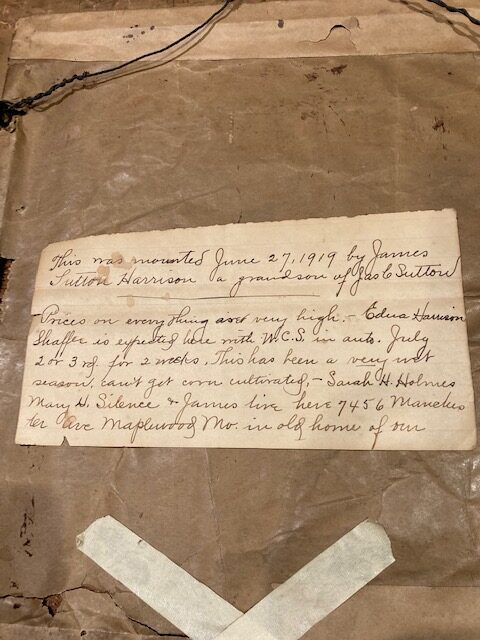 This was mounted June 27, 1919 by James
Sutton Harrison a grandson of Jas C Sutton
Prices on everything are very high. - Edna Harrison
Shaffer is expected here with W.C.S. in auto. July
2 or 3rd for 2 weeks. This has been a very wet
season, can't get corn cultivated, - Sarah H. Holmes
Mary H. Silence & James live here 7456 Manches
ter Ave Maplewood Mo. in old home of our